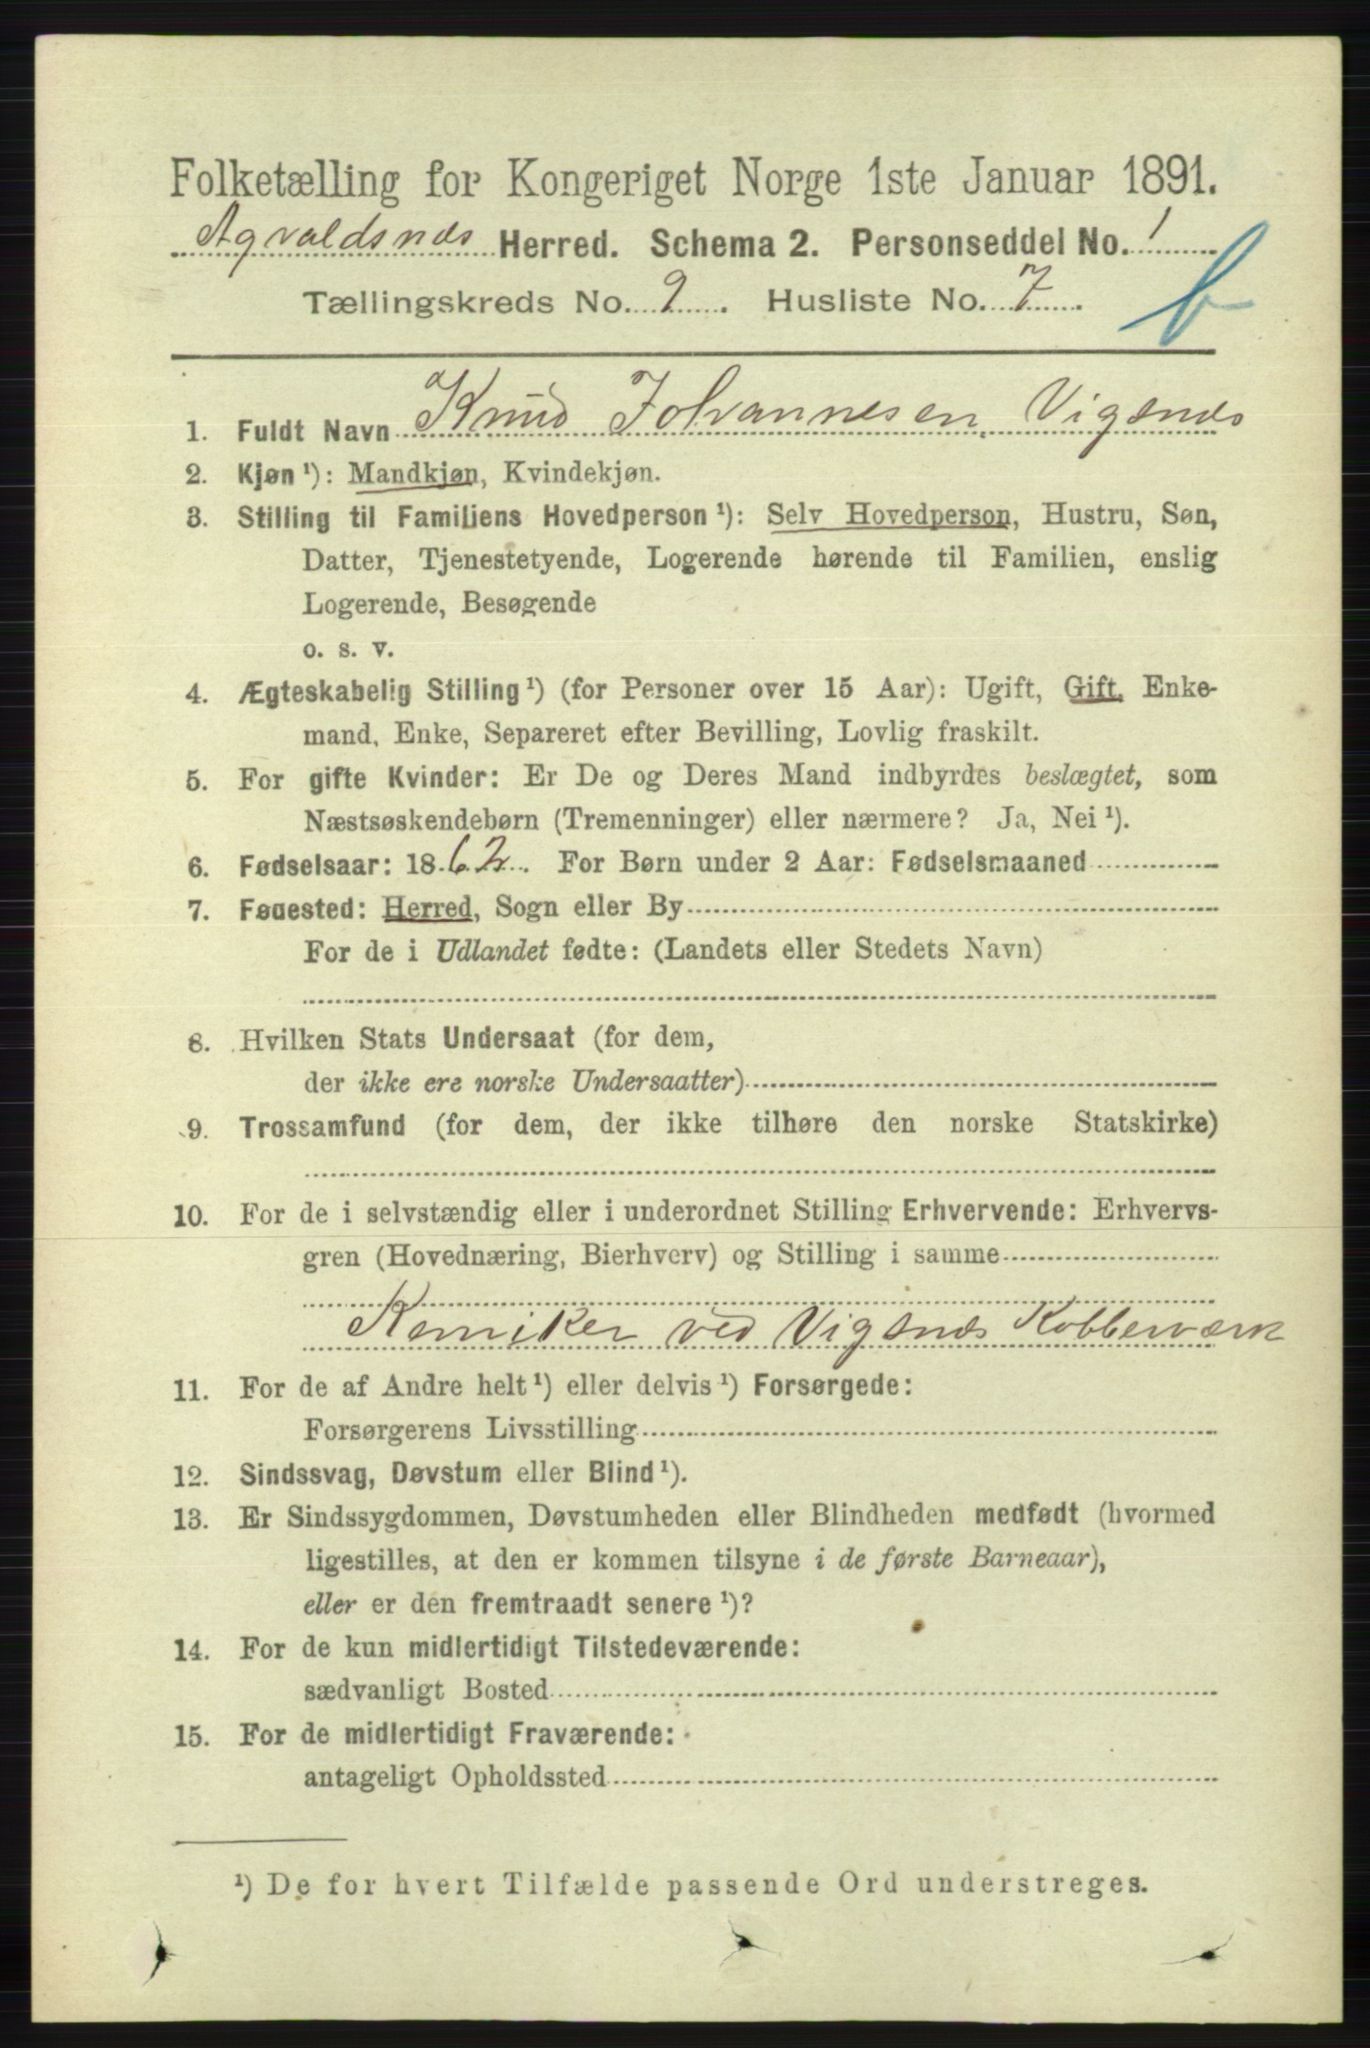 Folketælling for Kongeriget Norge 1ste Januar 1891.
Agvaldsnæs Herred. Schema 2. Personseddel No. 1
Tællingskreds No. 9. Husliste No. 7.
b
1. Fuldt Navn Knud Johannesen Vigsnæs
2. Kjøn ¹): Mandkjøn, Kvindekjøn.
3. Stilling til Familiens Hovedperson ¹): Selv Hovedperson, Hustru, Søn,
Datter, Tjenestetyende, Logerende hørende til Familien, enslig
Logerende, Besøgende
o. s. v.
4. Ægteskabelig Stilling ¹) (for Personer over 15 Aar): Ugift, Gift, Enke-
mand, Enke, Separeret efter Bevilling, Lovlig fraskilt.
5. For gifte Kvinder: Er De og Deres Mand indbyrdes beslægtet, som
Næstsøskendebørn (Tremenninger) eller nærmere? Ja, Nei ¹).
6. Fødselsaar: 1862. For Børn under 2 Aar: Fødselsmaaned
7. Fødested: Herred, Sogn eller By
For de i Udlandet fødte: (Landets eller Stedets Navn)
8. Hvilken Stats Undersaat (for dem,
der ikke ere norske Undersaatter)
9. Trossamfund (for dem, der ikke tilhøre den norske Statskirke)
10. For de i selvstændig eller i underordnet Stilling Erhvervende: Erhvervs-
gren (Hovednæring, Bierhverv) og Stilling i samme
Kemiker ved Vigsnæs Kobberværk
11. For de af Andre helt ¹) eller delvis ¹) Forsørgede:
Forsørgerens Livsstilling
12. Sindssvag, Døvstum eller Blind ¹).
13. Er Sindssygdommen, Døvstumheden eller Blindheden medfødt (hvormed
ligestilles, at den er kommen tilsyne i de første Barneaar),
eller er den fremtraadt senere ¹)?
14. For de kun midlertidigt Tilstedeværende:
sædvanligt Bosted
15. For de midlertidigt Fraværende:
antageligt Opholdssted
¹) De for hvert Tilfælde passende Ord understreges.